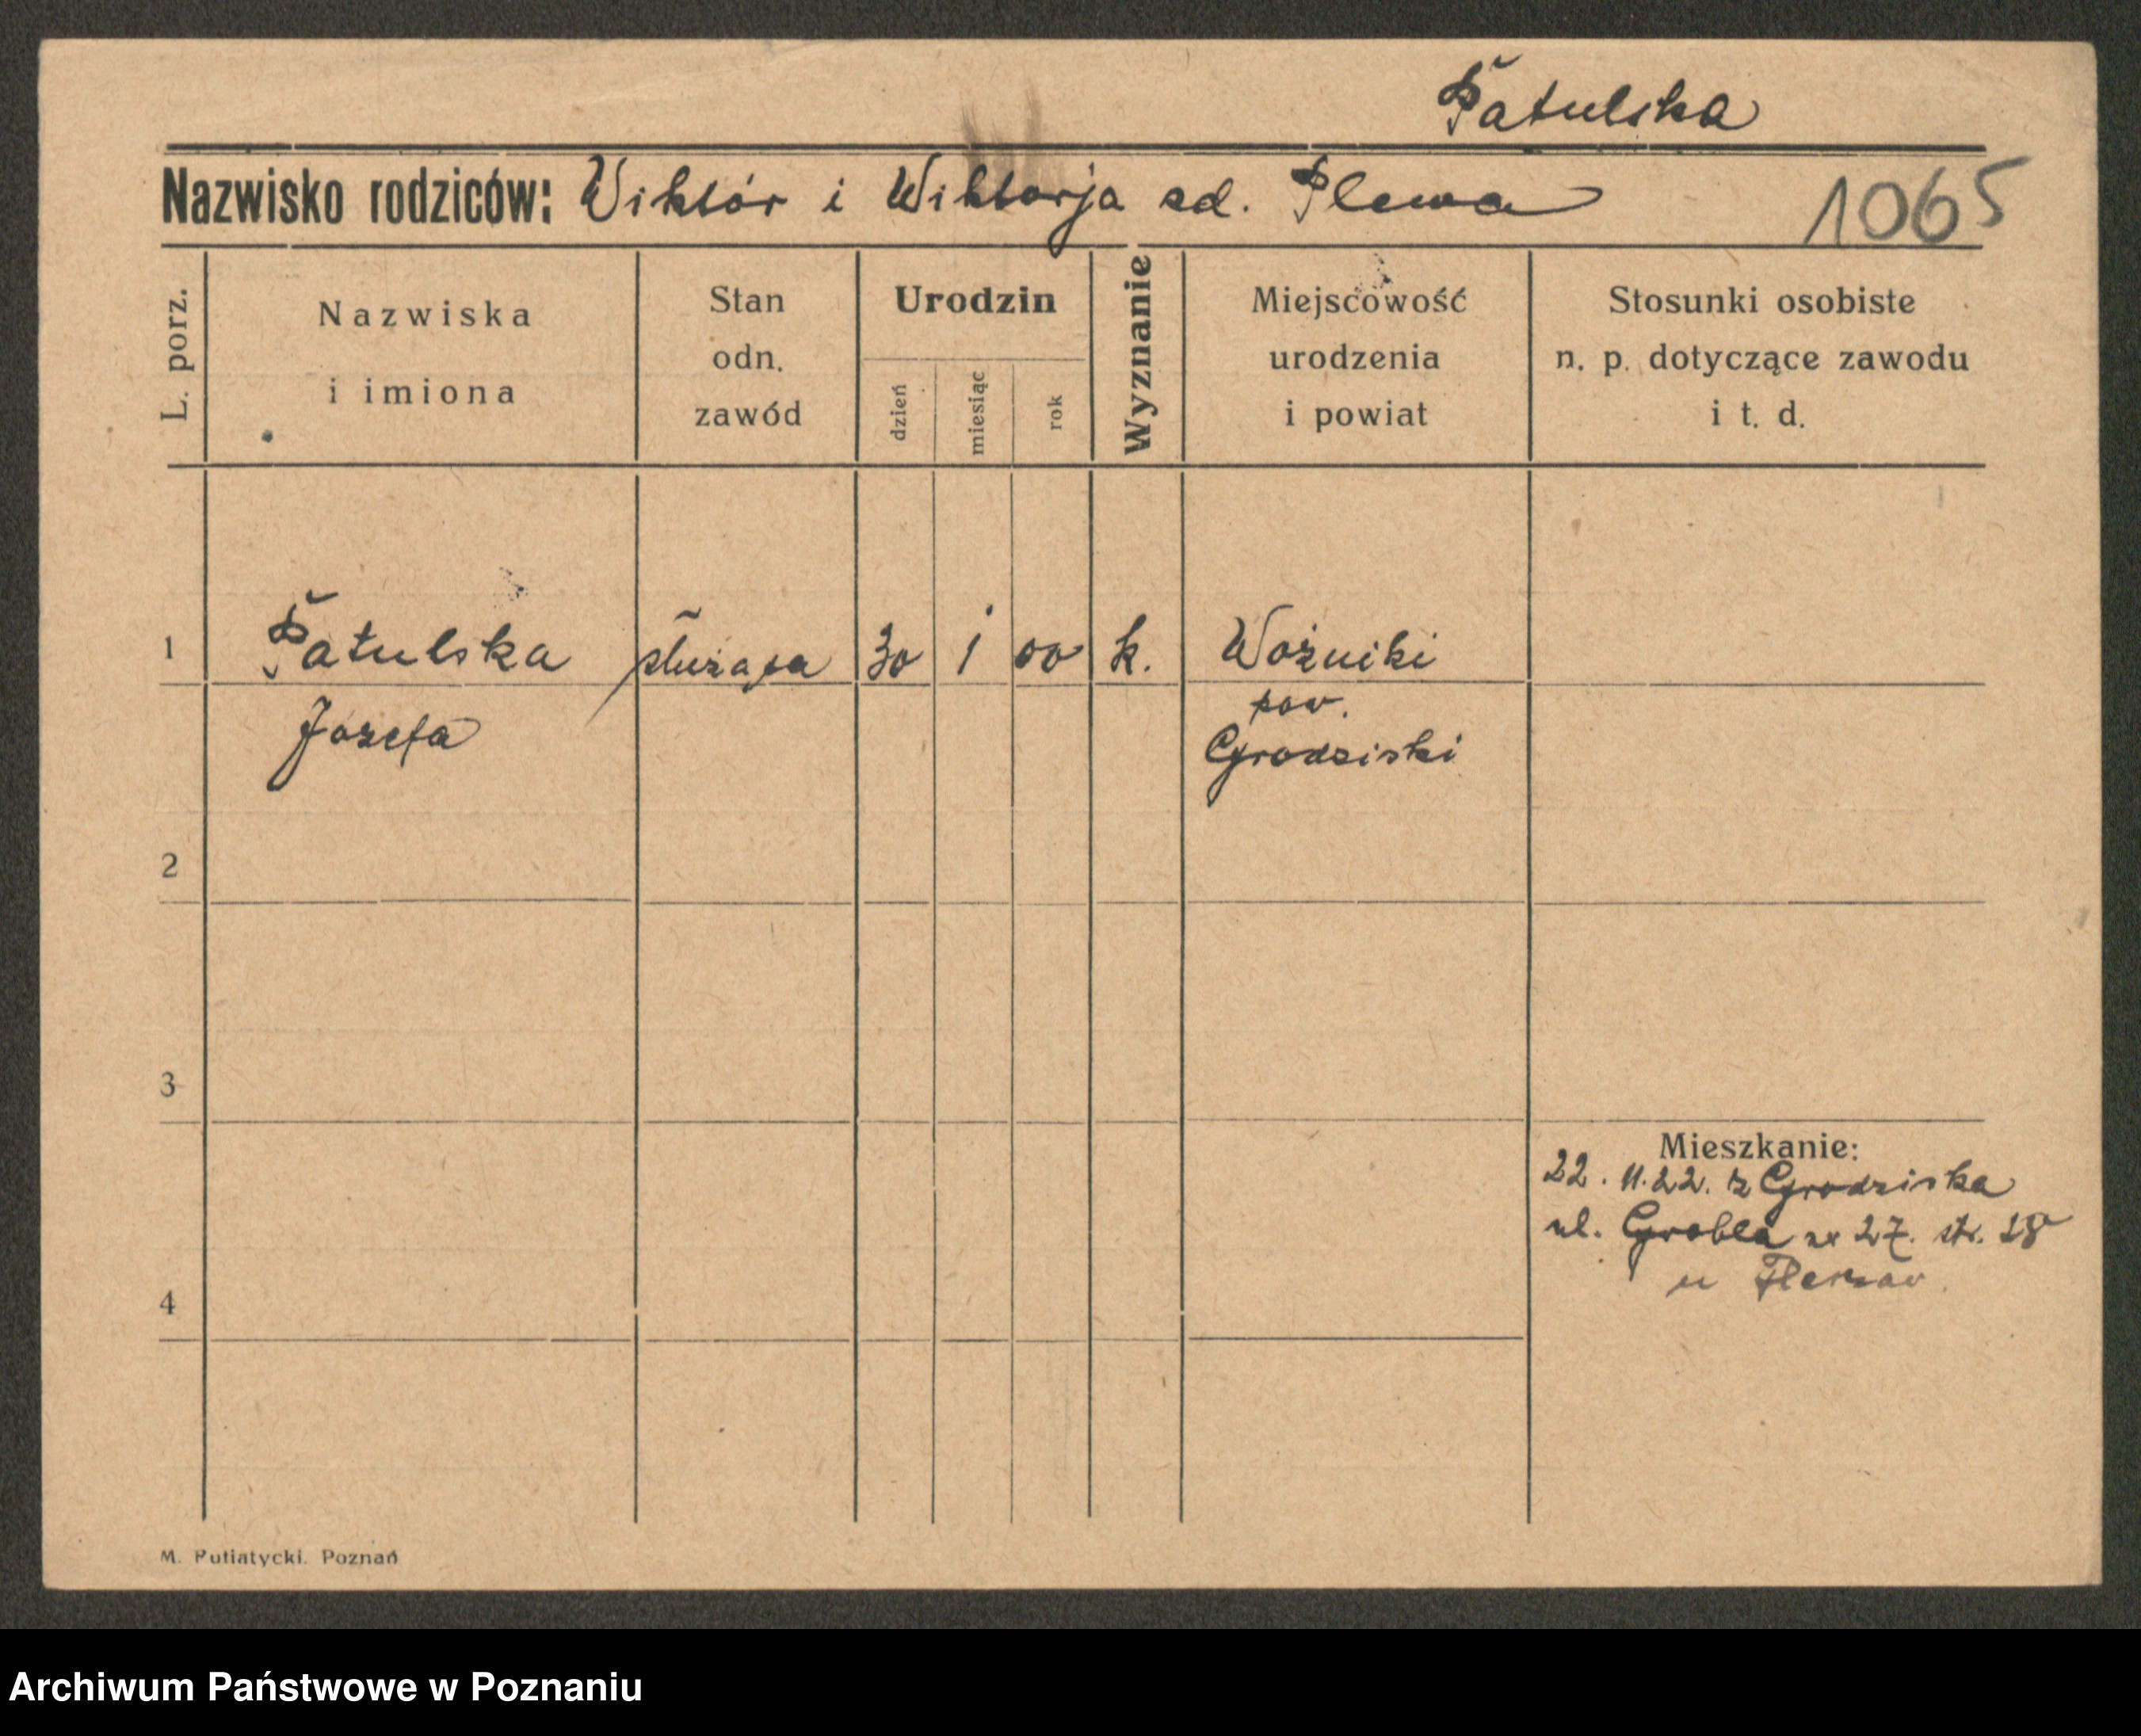 Patulska
Nazwisko rodziców: Wiktór i Wiktorja zd. Plewa
1065
L. porz.
Nazwiska
i imiona
Stan
odn.
zawód
Urodzin
dzień
miesiąc
rok
Wyznanie
Miejscowość
urodzenia
i powiat
Stosunki osobiste
n. p. dotyczące zawodu
i t. d.
1 Patulska służąca 30 1 00 k. Woźniki
Józefa
pow.
Grodziski
2
3
4
Mieszkanie:
22. 11. 22. z Grodziska
ul. Grobla nr 27. str. 18
u
M. Putiatycki. Poznań
Archiwum Państwowe w Poznaniu